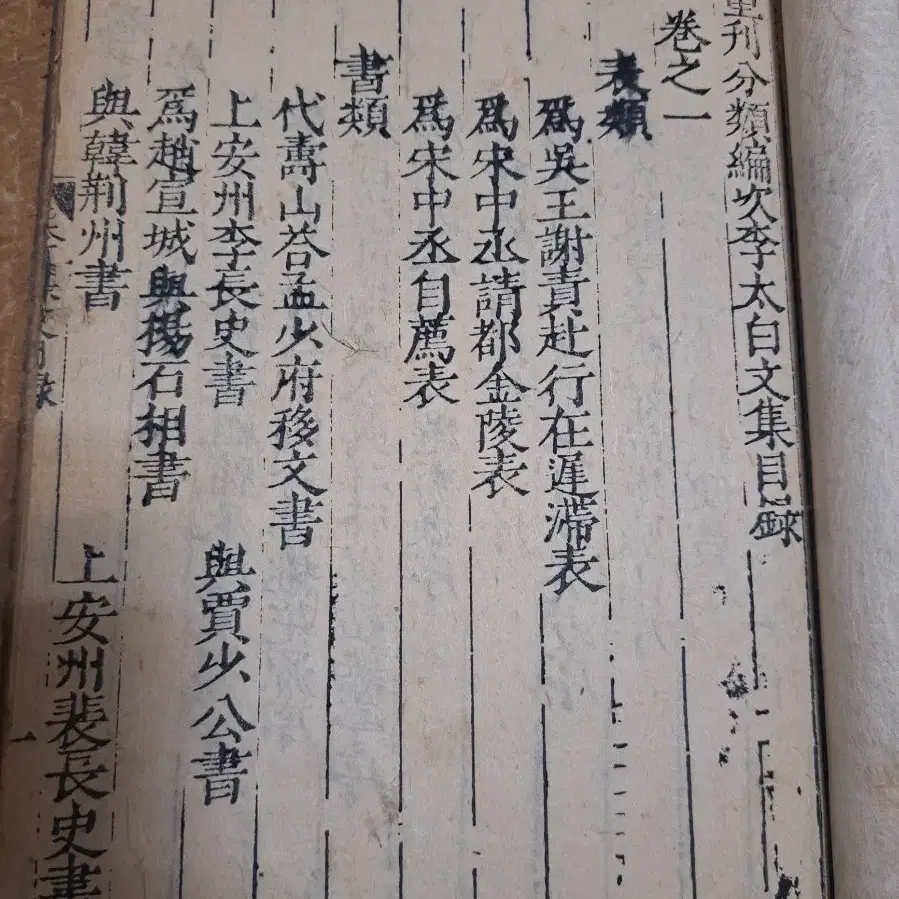 重刊分類編次李太白文集目錄
卷之一
表類
爲吳王謝責赴行在遲滯表
爲宋中丞請都金陵表
爲宋中丞自薦表
書類
代壽山荅孟少府移文書
上安州李長史書 與賈少公書
爲趙宣城與楊石相書
與韓荆州書 上安州裴長史書
一